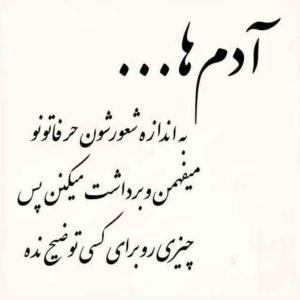 آدم ها...
به اندازه شعورشون حرفاتونو
میفهمن و برداشت میکنن پس
چیزی رو برای کسی توضیح نده